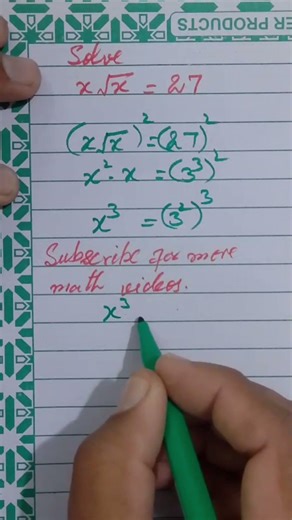 ER PRODUCTS
Solve
x√x = 27
(x√x)² = (27)²
x² · x = (3³)²
x³ = (3²)³
Subscribe for more
math videos.
x³